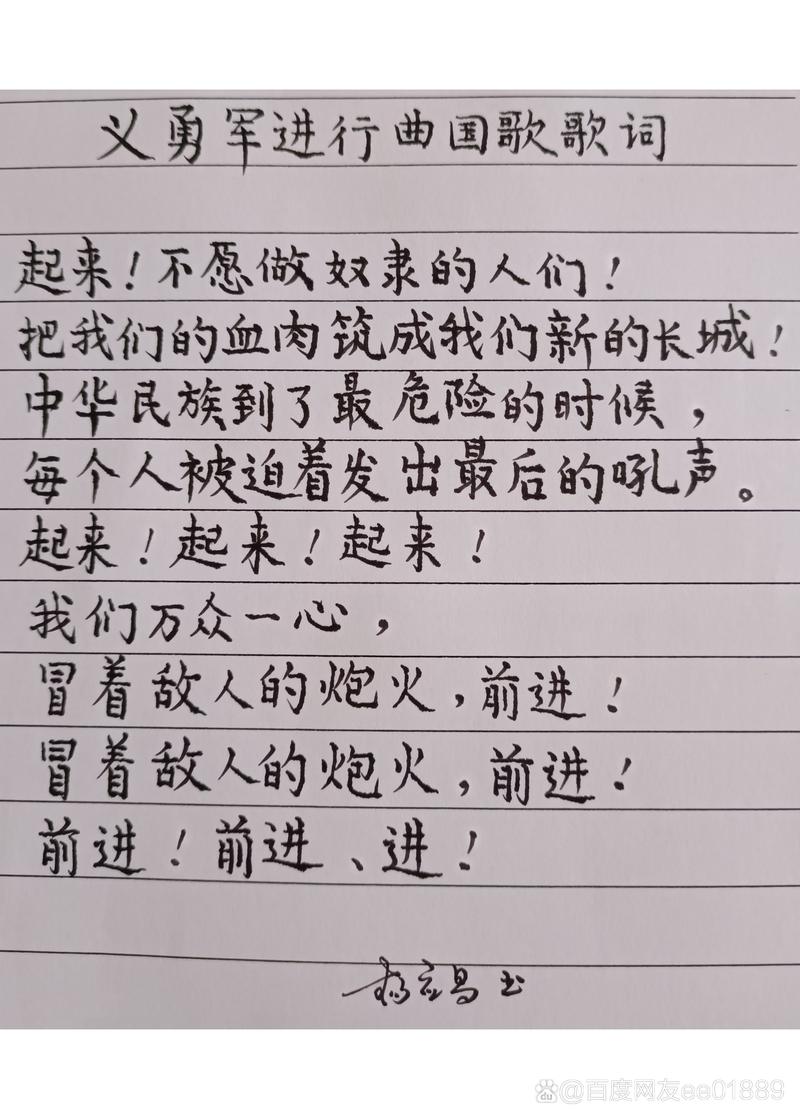 义勇军进行曲国歌歌词
起来!不愿做奴隶的人们!
把我们的血肉筑成我们新的长城!
中华民族到了最危险的时候,
每个人被迫着发出最后的吼声。
起来!起来!起来!
我们万众一心,
冒着敌人的炮火,前进!
冒着敌人的炮火,前进!
前进!前进、进!
杨应昌书
@百度网友ee01889